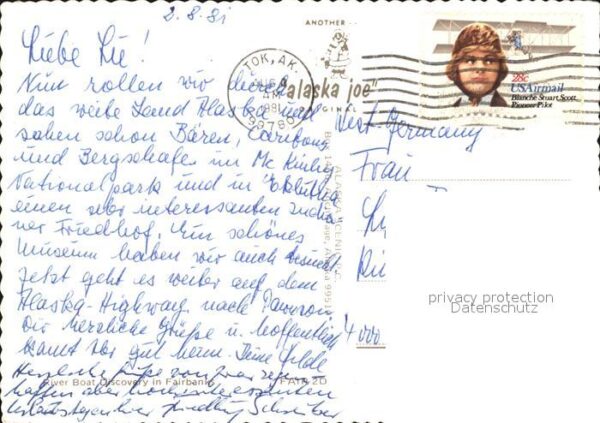 2.8.81
ANOTHER
Liebe
Nun rollen wir durch
das weite Land Alaska und
sahen schon Bären, Caribous
und Bergschafe im Mc Kinley
Nationalpark und in Eklutna
einen sehr interessanten India
ner Friedhof. Ein schönes
Museum haben wir auch besucht
Jetzt geht es weiter auf dem
Alaska-Highway nach Dawson.
Dir herzliche Grüße u. hoffentlich
kamst Du gut heim. Deine
Herzliche Grüße
haffen aber hochinteressanten
River Boat Discovery in Fairbanks
FAIR 2D
TOK, AK
AUG
1981
99780
"alaska joe"
ORIGINAL
ALASKA SCENIC
Anchorage, Alaska 9951
28c
USAirmail
Blanche Stuart Scott
Pioneer Pilot
West Germany
Frau
4000
privacy protection
Datenschutz